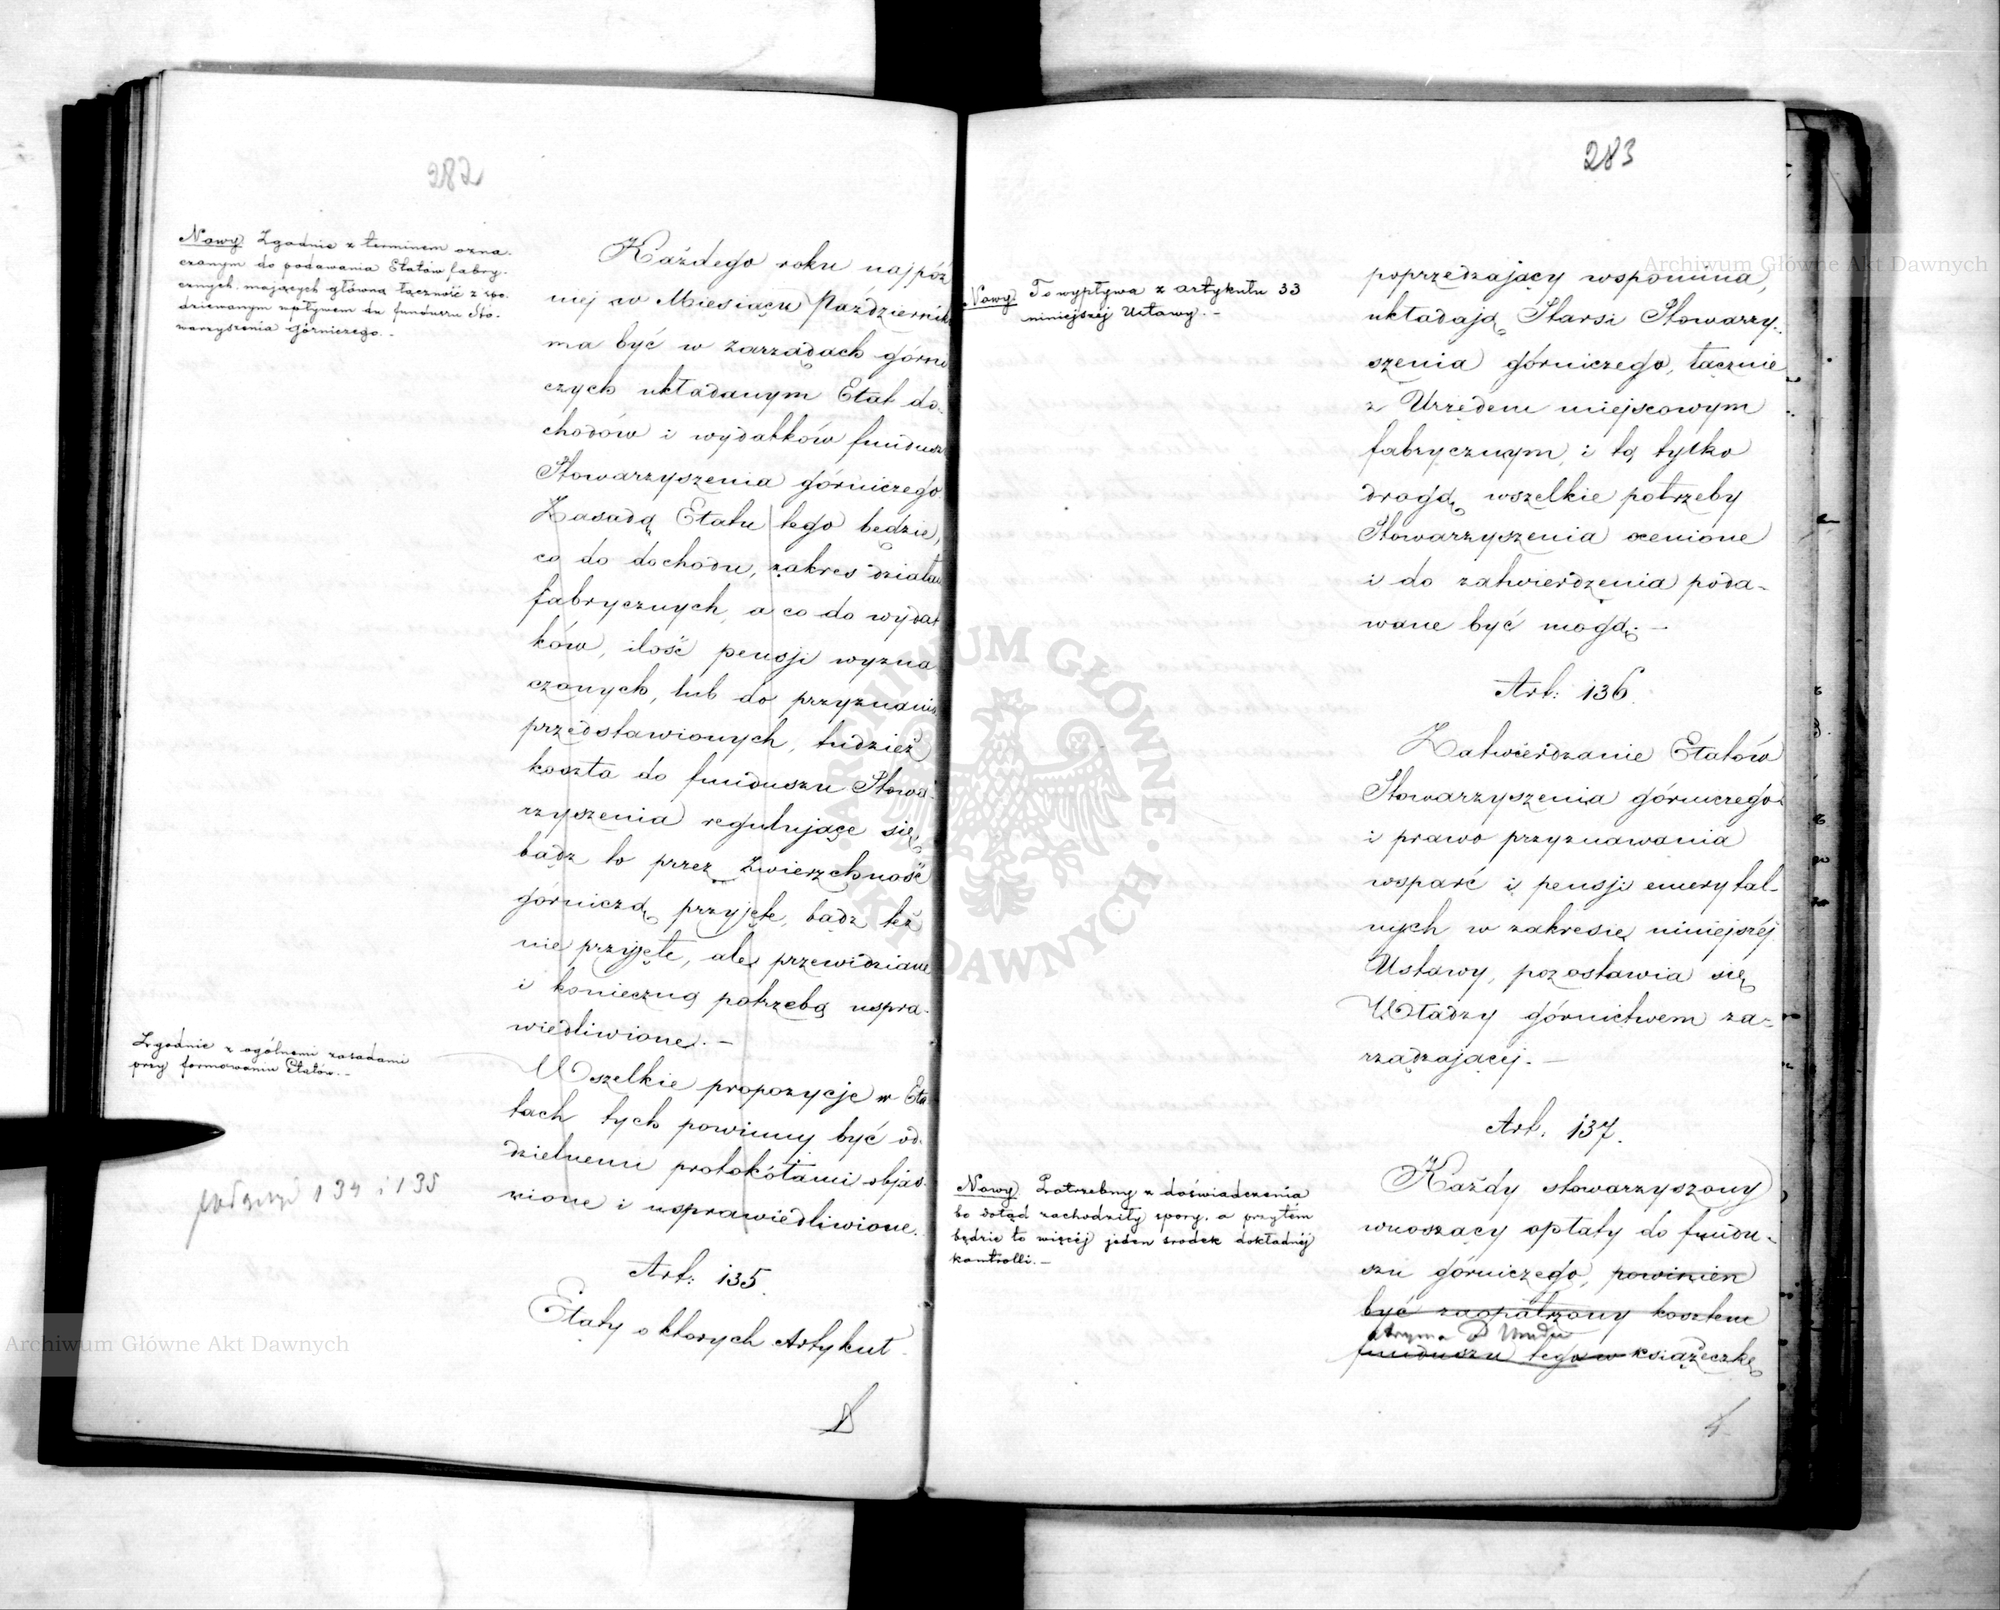 282
Nowy Zgodnie z terminem ozna-
czonym do podawania Etatów fabry-
cznych, mających główną łączność z spo-
dziewanym wpływem do funduszu Sto-
warzyszenia górniczego. -
Każdego roku najpóź
niej w Miesiącu Październik
ma być w zarządach górni
czych układanym Etat do-
chodów i wydatków fundusz
Stowarzyszenia górniczego.
Zasadą Etatu tego będzie,
co do dochodu, zakres działań
fabrycznych, a co do wydat
ków, ilość pensji wyzna
czonych, lub do przyznania
przedstawionych, tudzież
koszta do funduszu Stowa-
rzyszenia regulujące się,
bądz to przez Zwierzchność
górniczą przyjęte, bądz też
nie przyjęte, ale przewidziane
i konieczną potrzebą uspra-
wiedliwione. -
Zgodnie z ogólnemi zasadami
przy formowaniu Etatów. -
Wszelkie propozycje w Eta-
tach tych powinny być od-
dzielnemi protokółami objaś-
nione i usprawiedliwione.
134 i 135
Art: 135.
Etaty o ktorych Artykuł
283
Nowy To wypływa z artykułu 33
niniejszéj Ustawy. -
poprzedzający wspomina,
układają Starsi Stowarzy-
szenia górniczego, łącznie
z Urzędem miejscowym
fabrycznym, i tą tylko
drogą wszelkie potrzeby
Stowarzyszenia ocenione
i do zatwierdzenia poda-
wane być mogą. -
Art: 136.
Zatwierdzanie Etatów
Stowarzyszenia górniczego
i prawo przyznawania
wsparć i pensji emerytal-
nych w zakresie niniejszéj
Ustawy, pozostawia się
Władzy górnictwem za-
rządzającej. -
Art. 137.
Nowy Potrzebny z doświadczenia
bo dotąd zachodziły spory, a przytem
będzie to więcéj jeden środek dokładnéj
kontrolli. -
Każdy stowarzyszony
wnoszący opłaty do fundu-
szu górniczego, powinien
być zaopatrzony kosztem
otrzyma od
funduszu tego w książeczkę
ARCHIWUM GŁÓWNE AKT DAWNYCH
Archiwum Główne Akt Dawnych
Archiwum Główne Akt Dawnych